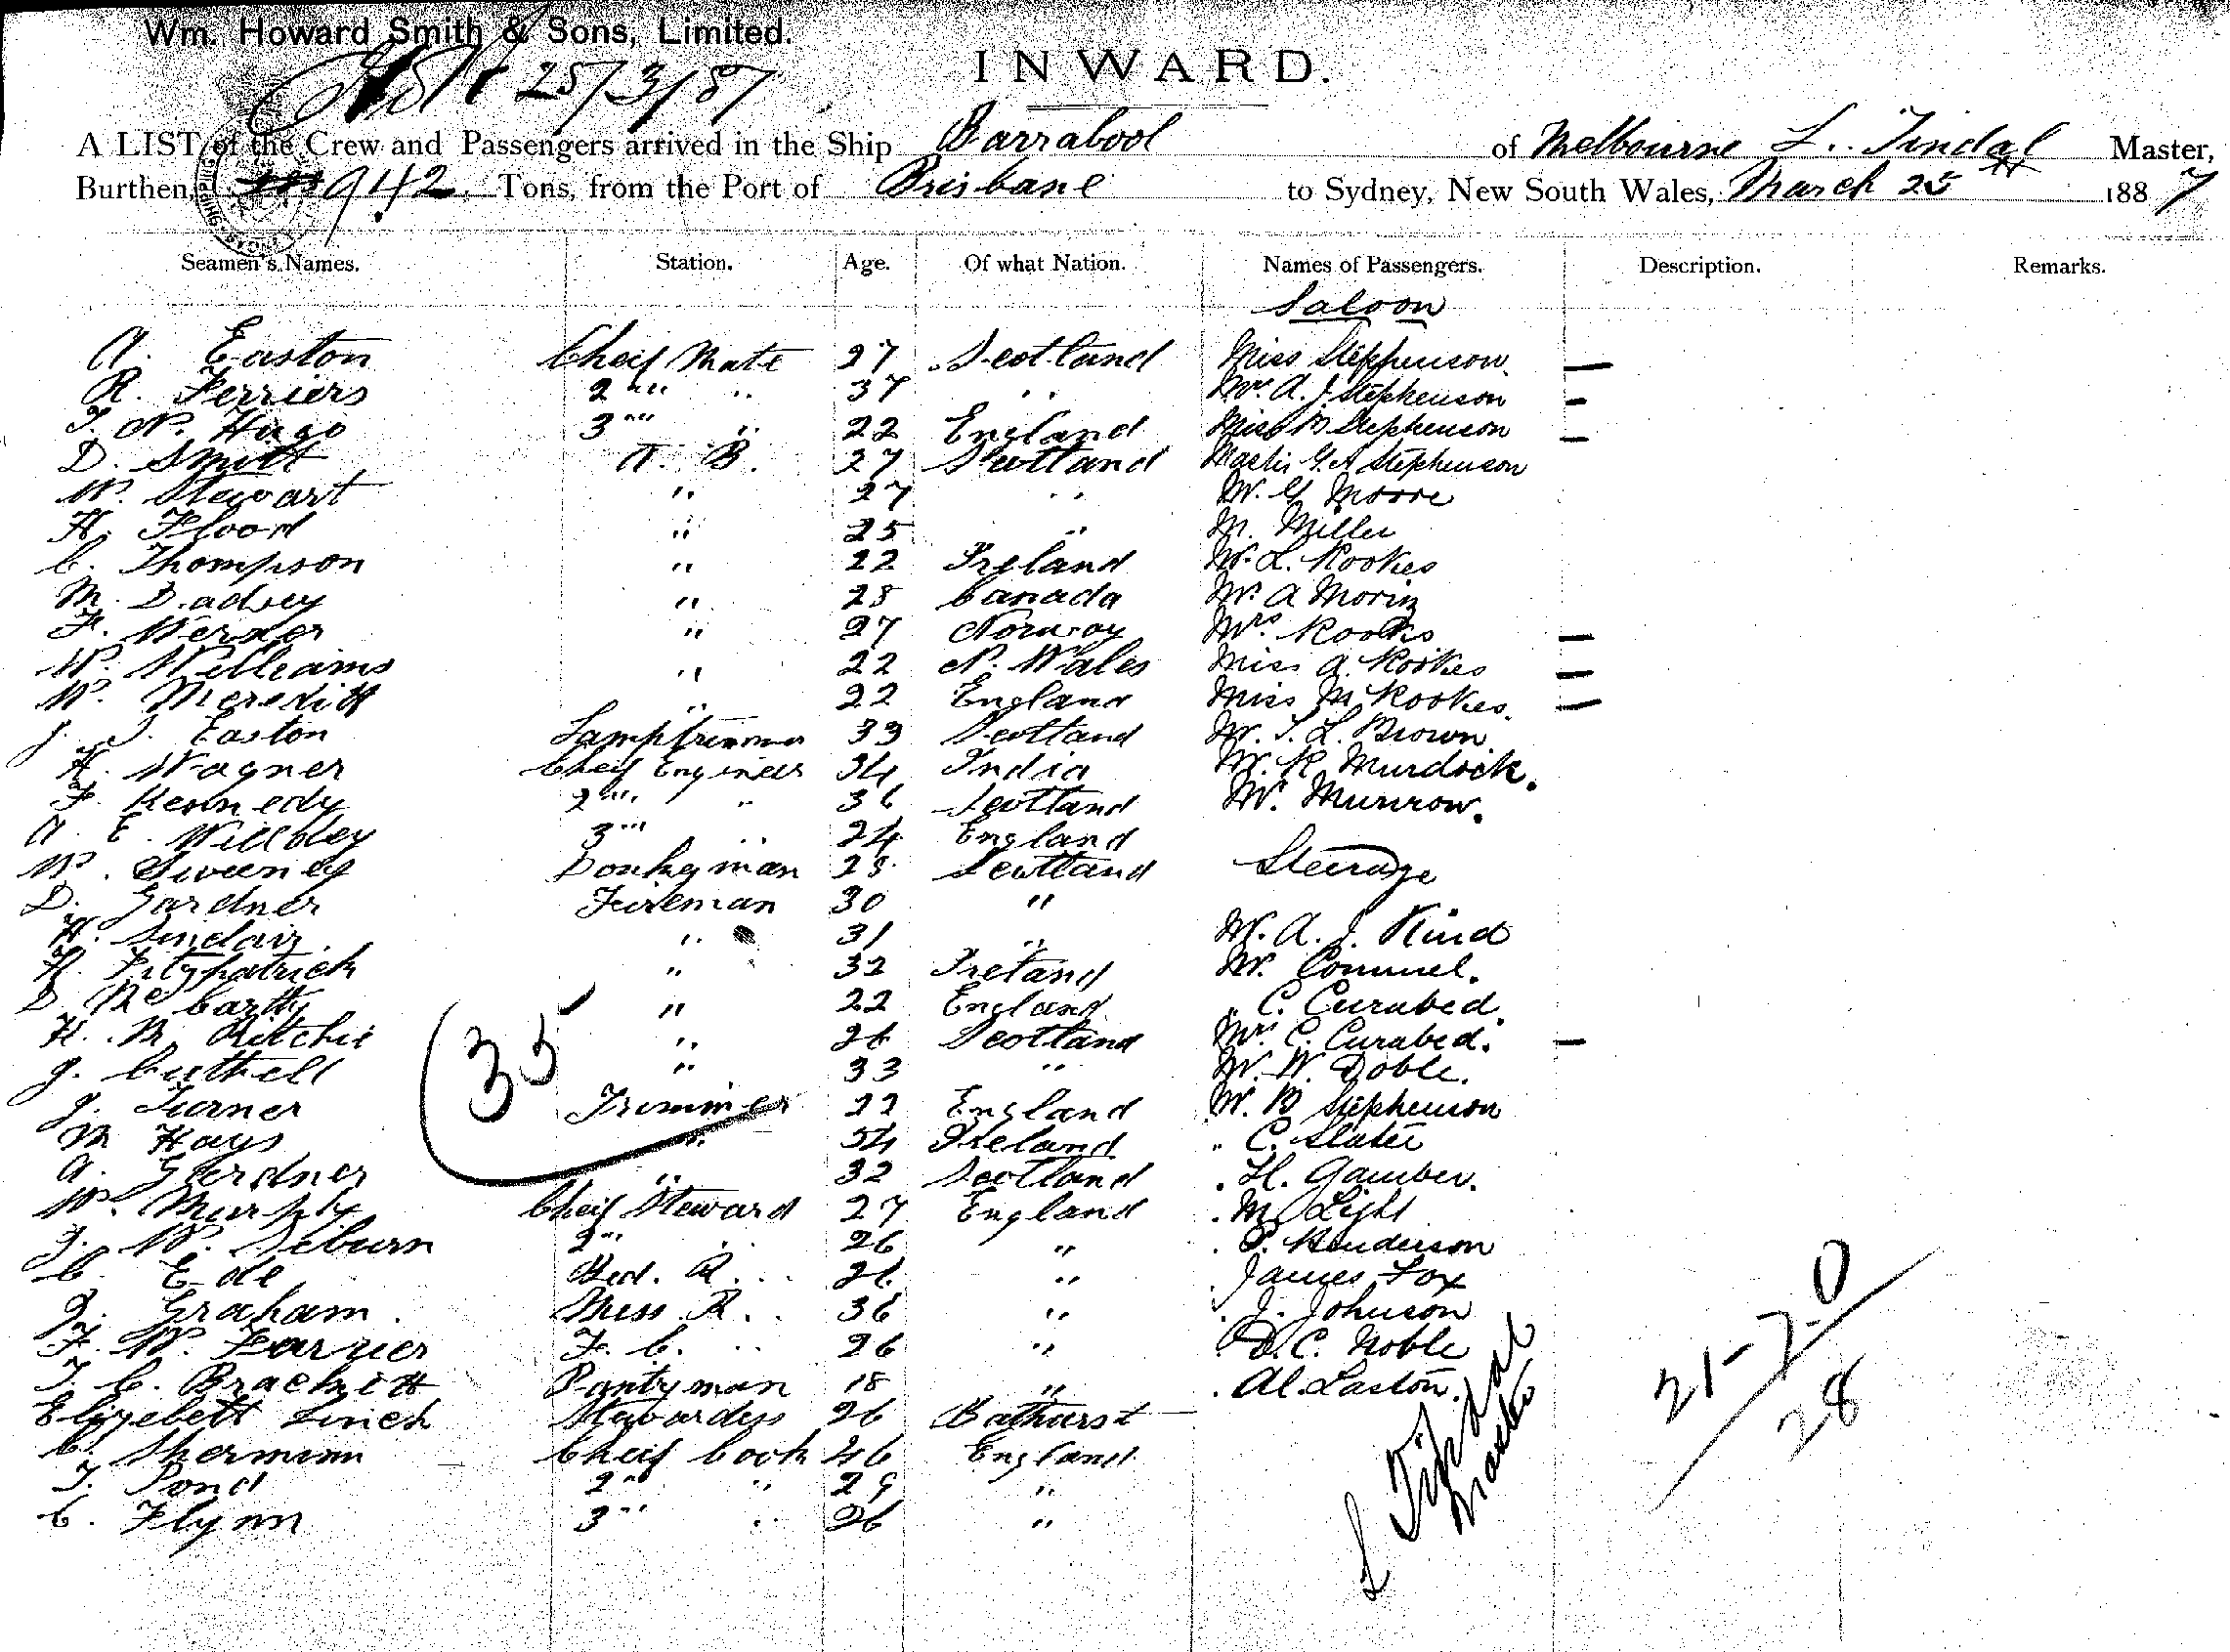 Wm. Howard Smith & Sons, Limited.
25/3/87
INWARD.
A LIST of the Crew and Passengers arrived in the Ship Barrabool of Melbourne L. Tindal Master,
Burthen, 942 Tons, from the Port of Brisbane to Sydney, New South Wales, March 25th 1887
Seamen's Names. Station. Age. Of what Nation. Names of Passengers. Description. Remarks.
Saloon
A. Easton Cheif Mate 27 Scotland Miss Stephenson —
R. Ferriers 2nd " 37 " Mr. A. J. Stephenson —
T. N. Hugo 3rd " 22 England Miss M Stephenson —
D. Smith A. B. 27 Scotland Master G. A Stephenson
W. Stewart " 27 " Mr. G Moore
H. Flood " 25 " M. Miller
C. Thompson " 22 Ireland Mr. L. Rookes
M. Dadsey " 28 Canada Mr. A Morin
F. Werner " 27 Norway Mrs. Rookes —
W. Williams " 22 N. Wales Miss A. Rookes —
W. Meredith " 22 England Miss M Rookes. —
J. J. Easton Lamptrimmer 39 Scotland Mr. T. L. Brown
H. Wagner Cheif Engineer 34 India Mr. R Murdock.
F. Kennedy 2nd " 36 Scotland Mr. Munrow.
A. E. Willoley 3rd " 24 England
W. Sweeney Donkeyman 28 Scotland Steerage
D. Gardner Fireman 30 "
H. Sinclair " 31 " Mr. A. J. Kind
H. Fitzpatrick " 32 Ireland Mr. Command.
D. McCarthy " 22 England " C. Curabed.
H. M. Ritchie " 26 Scotland Mrs. C. Curabed. —
J. Cuthell " 33 " Mr. W. Doble.
J. Turner Trimmer 22 England Mr. B Stephenson
M Hays " 54 Ireland " C. Slater
A. Gardner " 32 Scotland " H. Gamber.
W. Murphy Cheif Steward 27 England " M Light
J. W. Seburn 2nd " 26 " " P. Henderson
C. Ede Bed. R. " 26 " " James Fox
J. Graham Mess R. " 36 " " J. Johnson
F. W. Farrier F. C. " 26 " D. C. Noble
T. C. Bracknett Pantryman 18 " " Al. Laston.
Elizebett Linch Stewardess 26 Bathurst
C. Shermann Cheif Cook 46 England
T. Pond 2nd " 29 "
C. Flynn 3rd " 26 "
35
L Tindal
Master
21-7-0
28